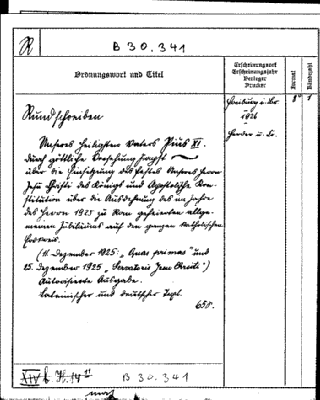 R
B 30.341
Ordnungswort und Titel
Erscheinungsort
Erscheinungsjahr
Verleger
Drucker
Format
Bändezahl
Rundschreiben
Unseres Heiligsten Vaters Pius XI.
durch göttliche Vorsehung Papst
über die Einsetzung des Festes Unseres Herrn
Jesu Christi des Königs und Apostolische Kon-
stitution über die Ausdehnung des im Jahre
des Herrn 1925 zu Rom gefeierten allge-
meinen Jubiläums auf den ganzen katholischen
Erdkreis.
(11. Dezember 1925: „Quas primas" und
25. Dezember 1925 „Servatoris Jesu Christi")
Autorisierte Ausgabe.
Lateinischer und deutscher Text.
65S.
Freiburg i. Br.
1926
Herder u. Co.
8°
1
B 30.341